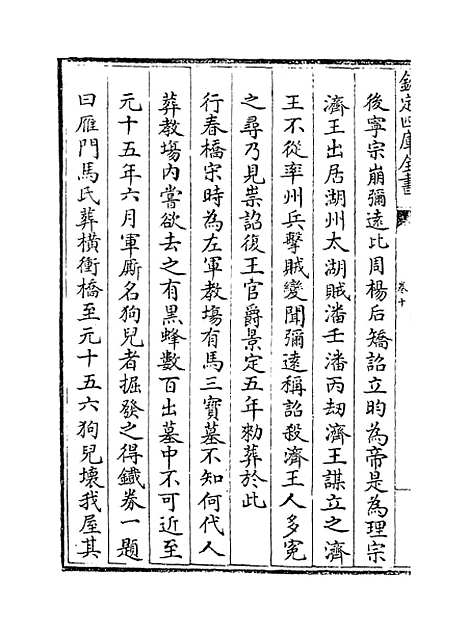 欽定四庫全書
卷十
後寧宗崩彌遠比周楊后矯詔立昀為帝是為理宗
濟王出居湖州太湖賊潘壬潘丙刧濟王謀立之濟
王不從率州兵擊賊變聞彌遠稱詔殺濟王人多寃
之尋乃見祟詔復王官爵景定五年勑葬於此
行春橋宋時為左軍教塲有馬三寶墓不知何代人
葬教塲内嘗欲去之有黑蜂數百出墓中不可近至
元十五年六月軍厮名狗兒者掘發之得鐵券一題
曰雁門馬氏葬橫衝橋至元十五六狗兒壞我屋其